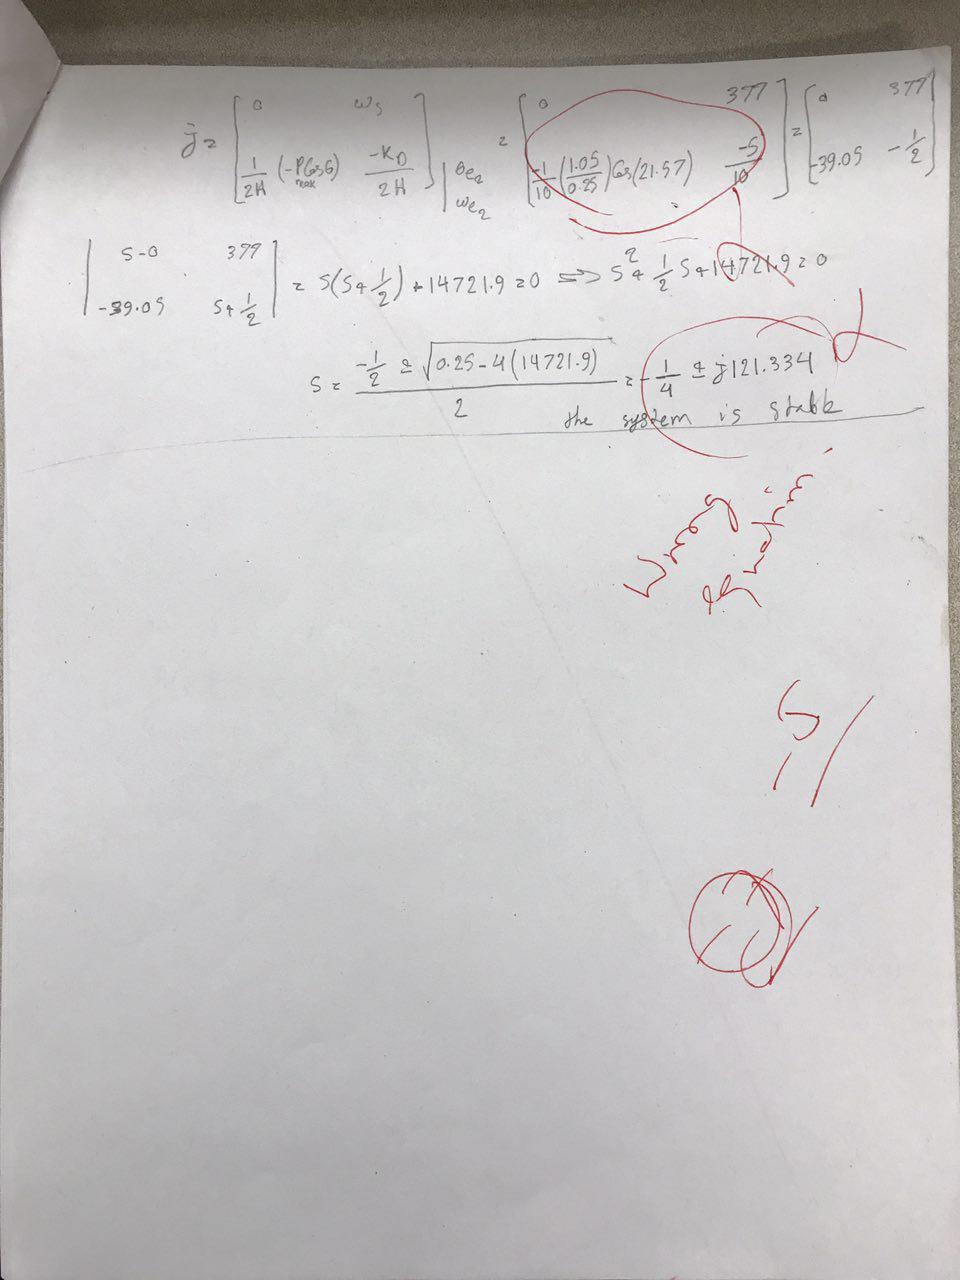 j = [ 0 ωs ; 1/2H (-Pmax Cos δ) -KD/2H ] | θe2 ωe2 = [ 0 377 ; -1/10 (1.05/0.25) Cos(21.57) -5/10 ] = [ 0 377 ; -39.05 -1/2 ]
| S-0 377 ; -39.05 S+1/2 | = S(S+1/2)+14721.9=0 => S²+1/2 S+14721.9=0
S = (-1/2 ± √(0.25-4(14721.9)))/2 = -1/4 ± j121.334
the system is stable
Wrong